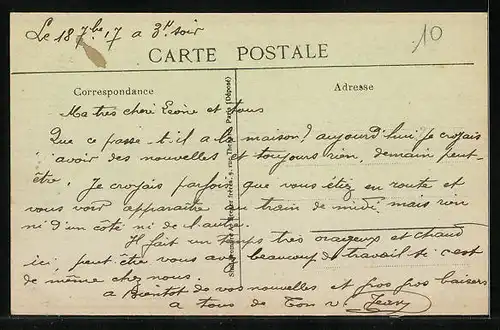 Le 18 7bre 17 a 3h soir
10
CARTE POSTALE
Correspondance
Adresse
Ma tres cheri Leoni et tous
Que ce passe-t-il a la maison? aujourd'hui je croyais
avoir des nouvelles et toujours rien, demain peut-
être. Je croyais parfois que vous étiez en route et
vous voir apparaitre au train de midi mais rien
ni d'un côté ni de l'autre.
Il fait un temps très orageux et chaud
ici, peut être vous avez beaucoup de travail si c'est
de même chez nous.
a Bientot de vos nouvelles et gros gros baisers
a tous de Ton v.